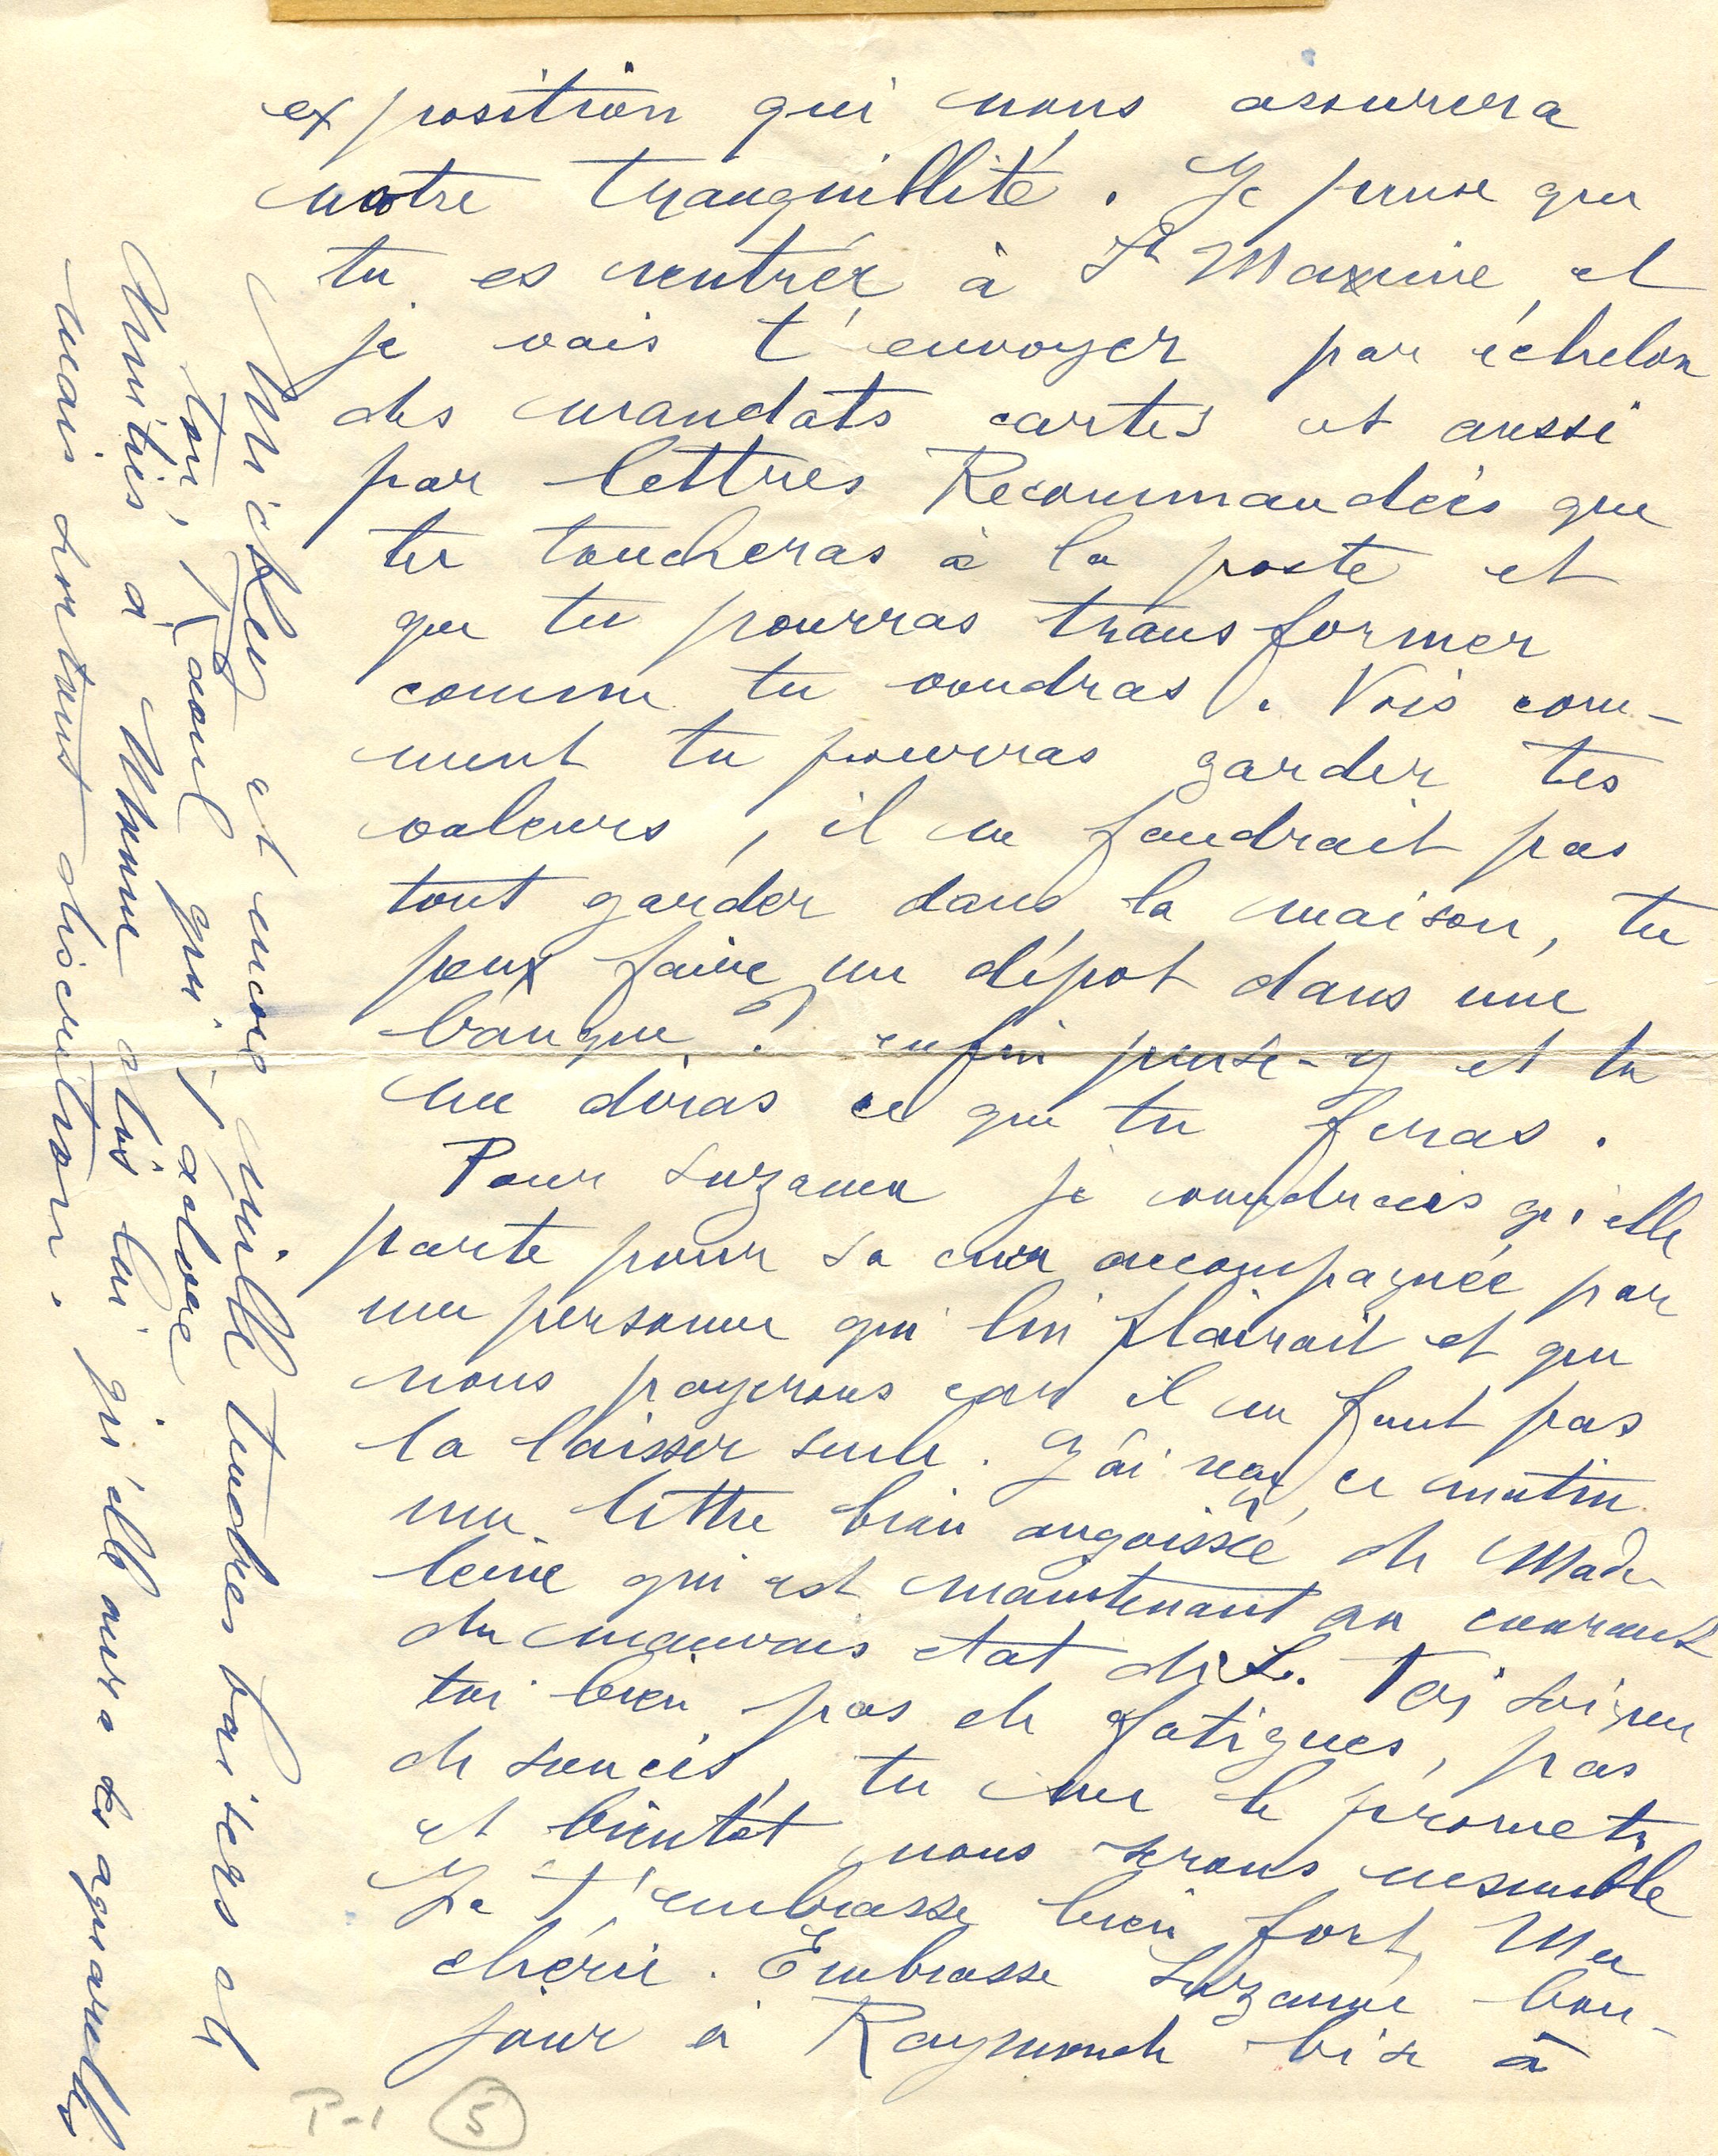 exposition qui nous assurera
notre tranquillité. Je pense que
tu es rentrée à St Maxime, et
je vais t'envoyer par échelon
des mandats cartes et aussi
par lettres Recommandées que
tu toucheras à la poste et
que tu pourras transformer
comme tu voudras. Vois com-
ment tu pourras garder tes
valeurs, il ne faudrait pas
tout garder dans la maison, tu
peux faire un dépot dans une
banque? enfin pense-y et tu
me diras ce que tu feras.
Pour Suzanne je voudrais qu'elle
parte pour sa cure accompagnée par
une personne qui lui plairait et que
nous payerons car il ne faut pas
la laisser seule. J'ai reçu ce matin
une lettre bien angoissée de Made-
leine qui est maintenant au courant
du mauvais état de S. Toi soigne
toi bien pas de fatigues, pas
de soucis, tu me le promets
et bientôt nous serons ensemble
Je t'embrasse bien fort, Ma
chérie. Embrasse Suzanne bon-
jour à Raymonde bise à
Michleu et encore mille tendres baisers et
ton Raoul qui t'adore
Amitiés à Mme dis lui qu'elle aura des aquarelles
mais sontant discrétion.
P-1 5